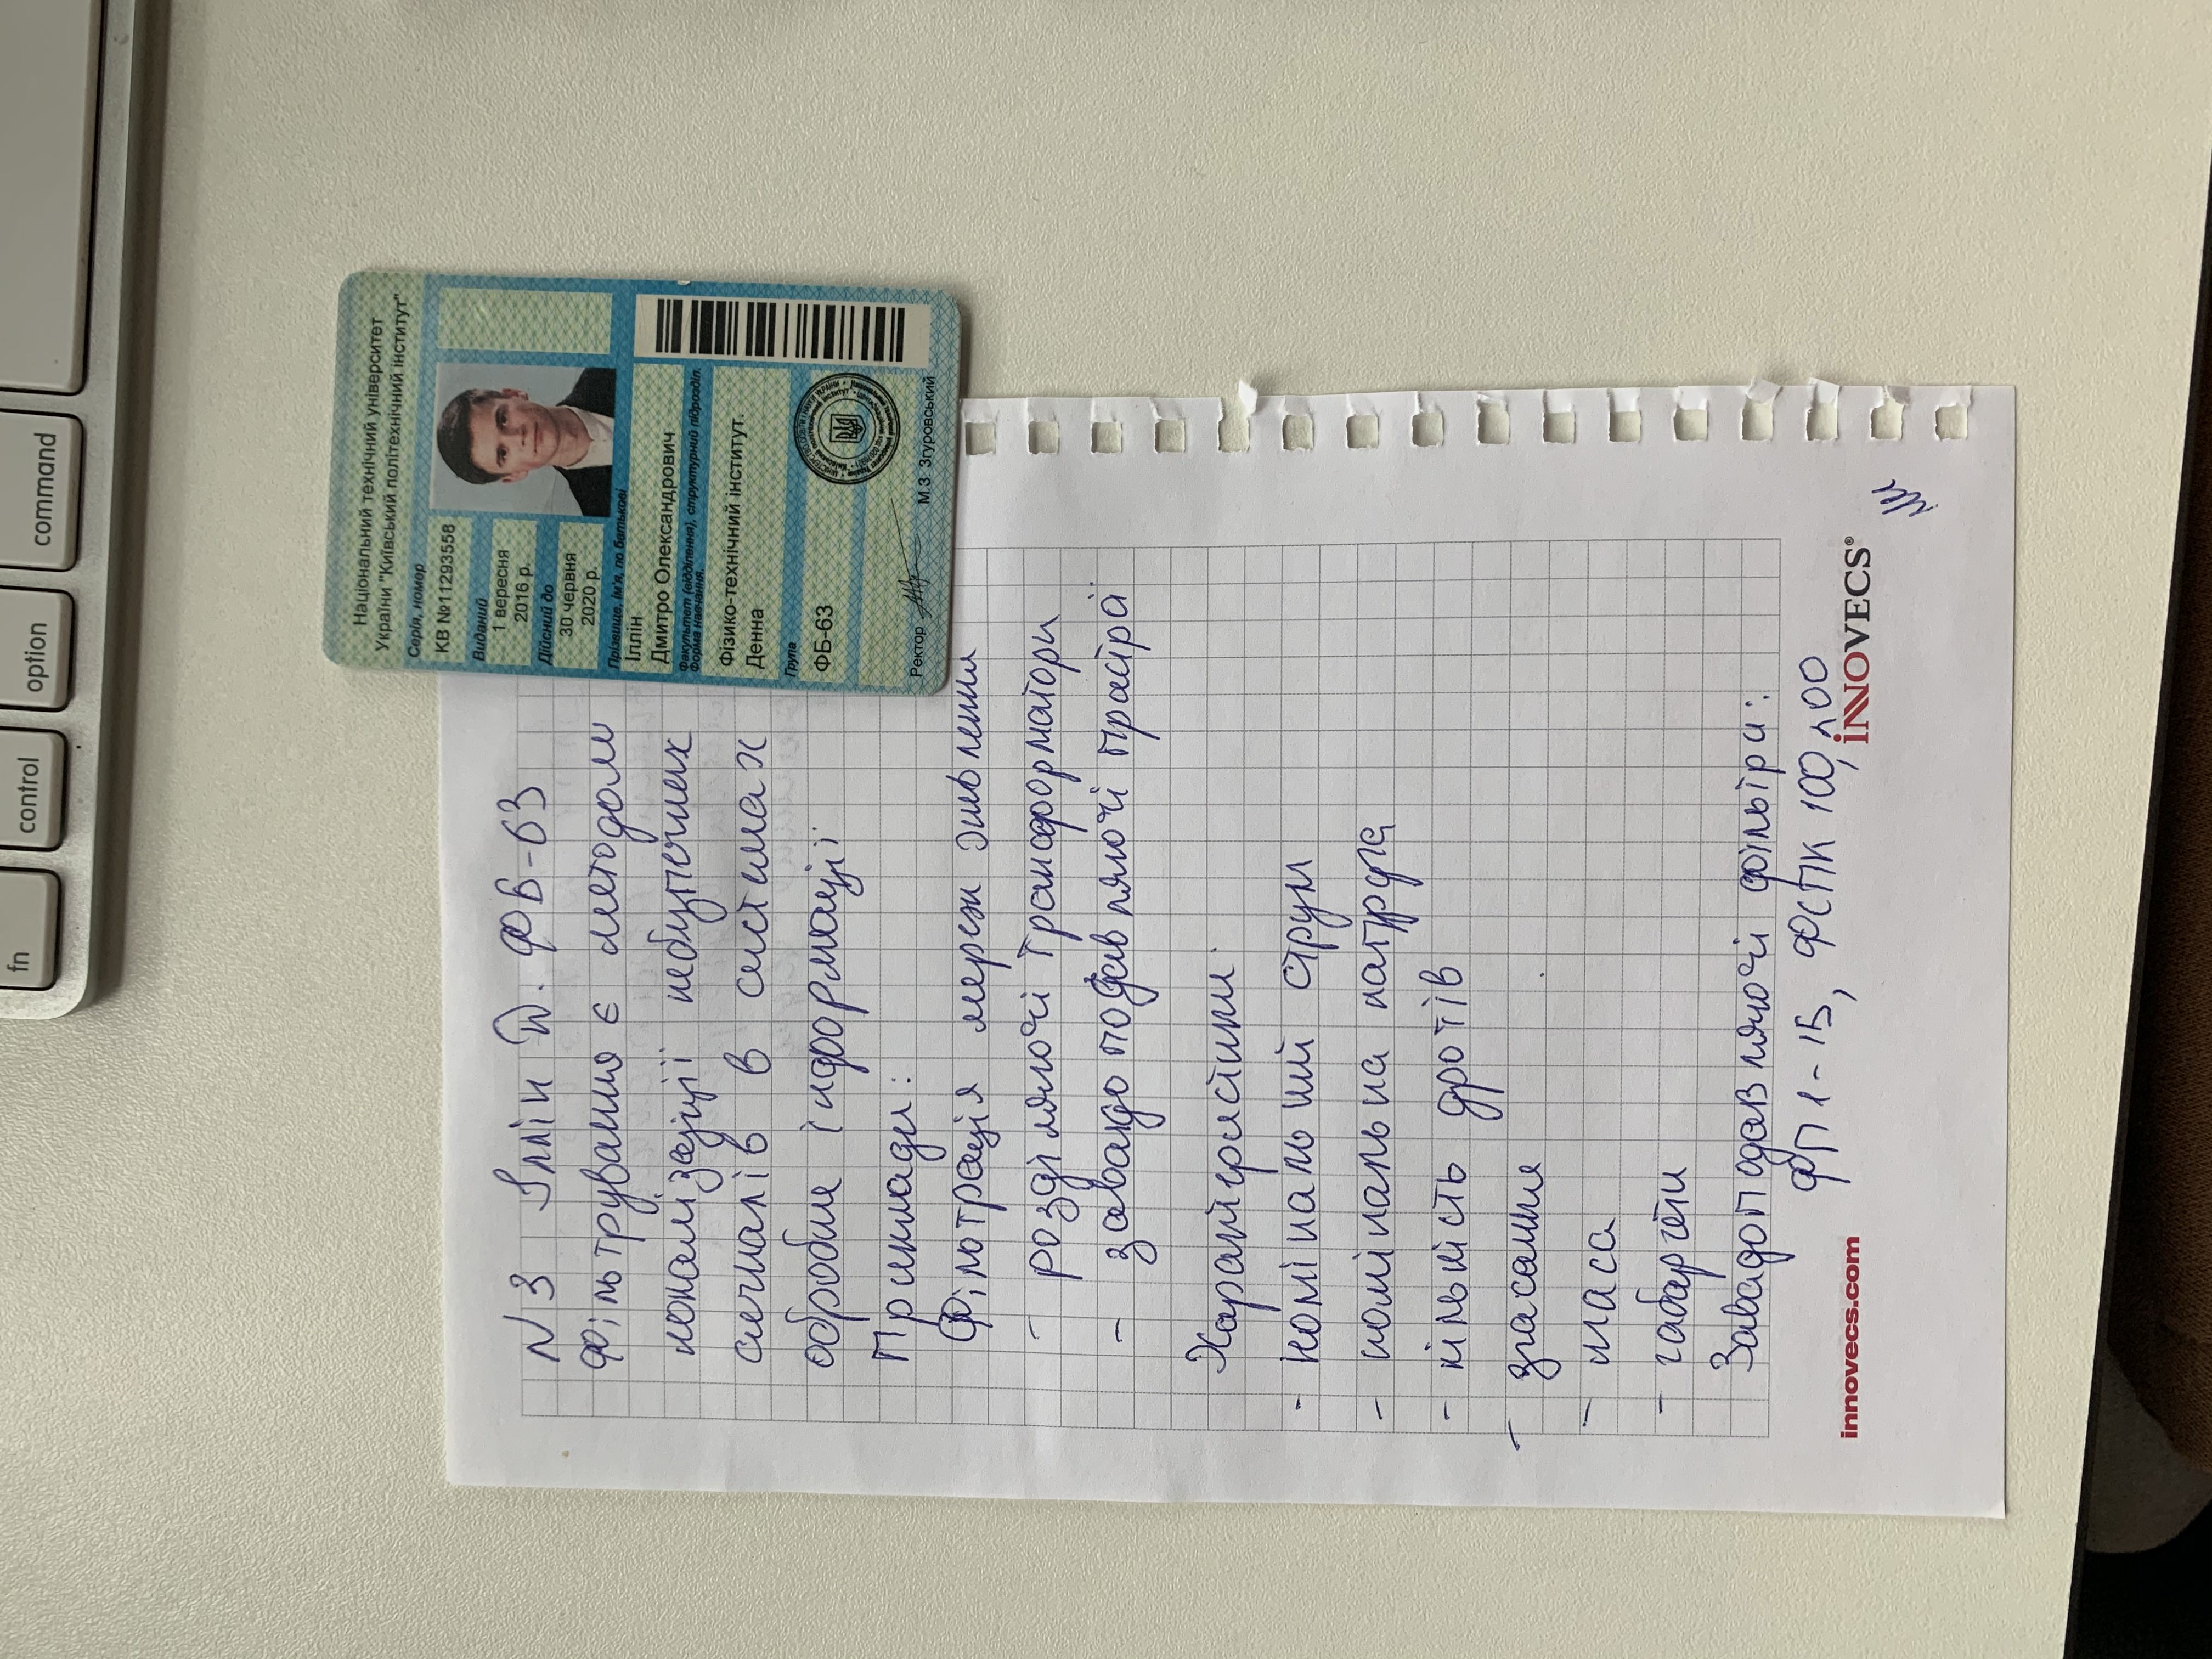 fn
control
option
command
Національний технічний університет
України "Київський політехнічний інститут"
Серія, номер
КВ №11293558
Виданий
1 вересня
2016 р.
Дійсний до
30 червня
2020 р.
Прізвище, ім'я, по батькові
Іллін
Дмитро Олександрович
Факультет (відділення), структурний підрозділ.
Форма навчання.
Фізико-технічний інститут.
Денна
Група
ФБ-63
Ректор М.З. Згуровський
N3 Іллін Д. ФБ-63
Фільтрування є методом
локалізації небезпечних
сигналів в системах
обробки інформації
Приклади:
Фільтрація мереж живлення
- розділяючі трансформатори
- завадоподавляючі пристрої
Характеристики
- номінальний струм
- номінальна напруга
- кількість дротів
- згасання
- маса
- габарити
Завадоподавлячі фільтри:
ФП 1-15, ФСПК 100, 200
innovecs.com
iNNOVECS®